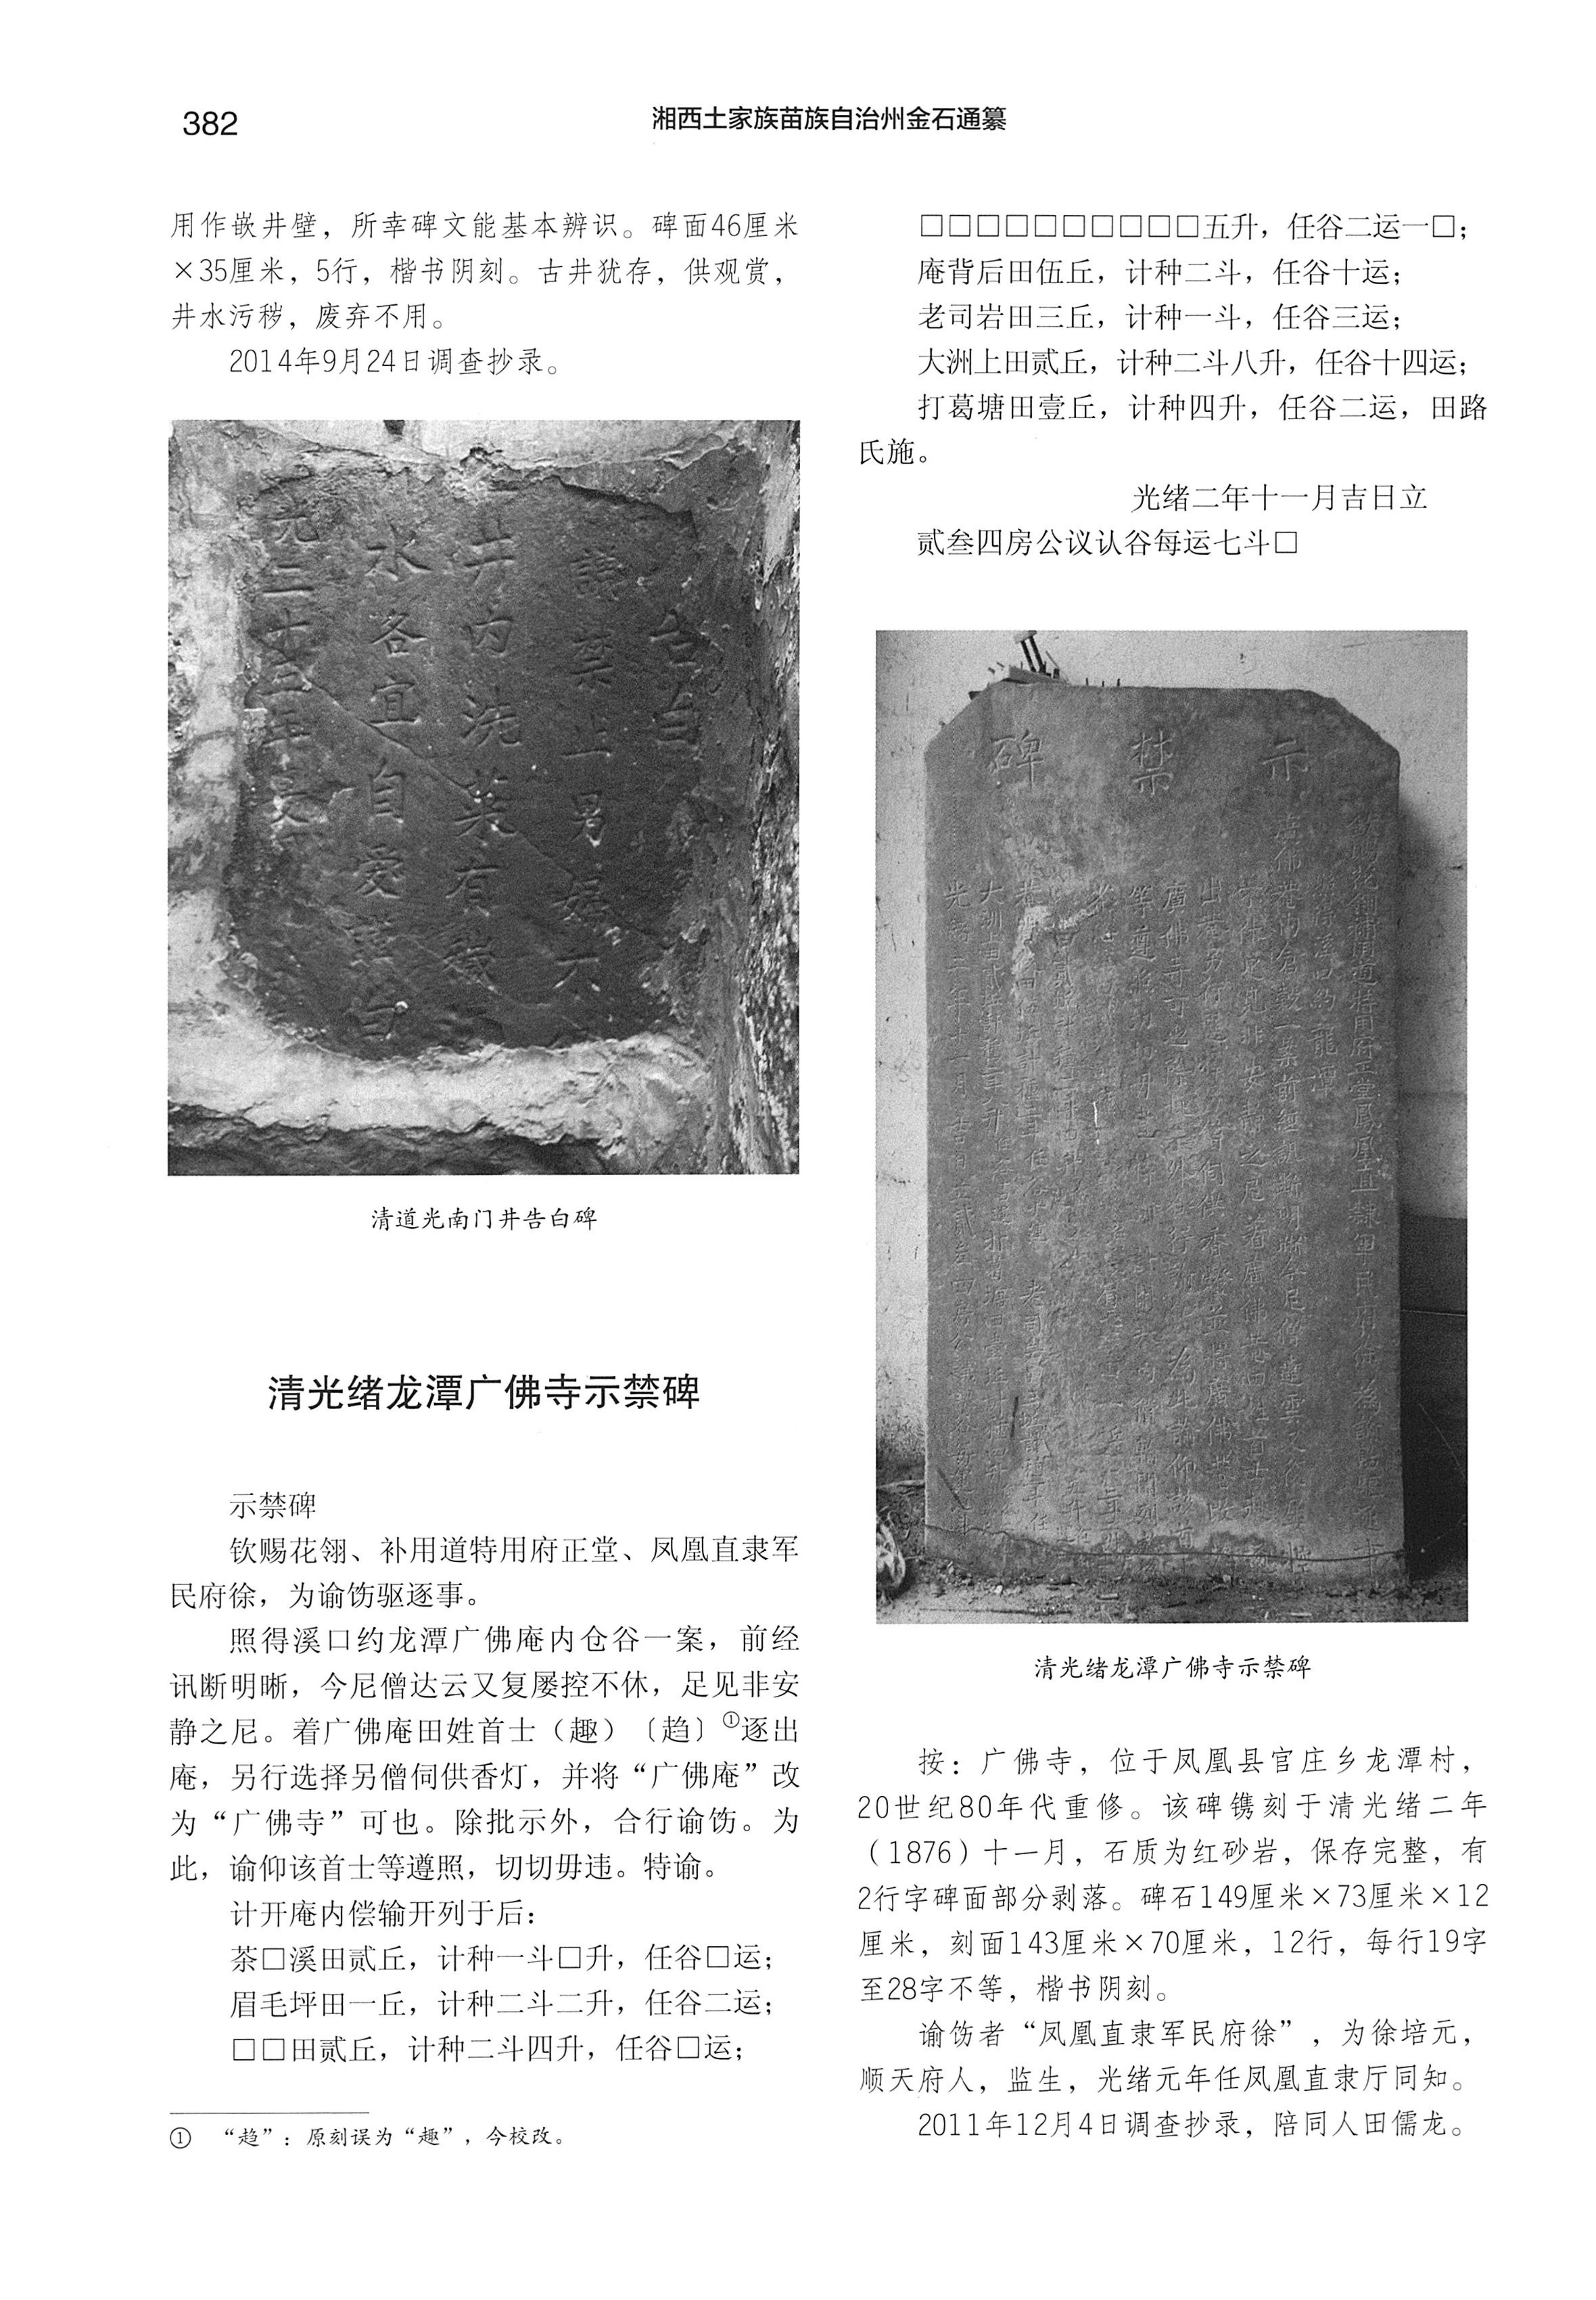 382
湘西土家族苗族自治州金石通纂
用作嵌井壁，所幸碑文能基本辨识。碑面46厘米
×35厘米，5行，楷书阴刻。古井犹存，供观赏，
井水污秽，废弃不用。
2014年9月24日调查抄录。
告白
禁止男妇大
井内洗菜有
水各宜自爱
光二十三年
清道光南门井告白碑
清光绪龙潭广佛寺示禁碑
示禁碑
钦赐花翎、补用道特用府正堂、凤凰直隶军
民府徐，为谕饬驱逐事。
照得溪口约龙潭广佛庵内仓谷一案，前经
讯断明晰，今尼僧达云又复屡控不休，足见非安
静之尼。着广佛庵田姓首士（趣）〔趋〕①逐出
庵，另行选择另僧伺供香灯，并将“广佛庵”改
为“广佛寺”可也。除批示外，合行谕饬。为
此，谕仰该首士等遵照，切切毋违。特谕。
计开庵内偿输开列于后：
茶□溪田贰丘，计种一斗□升，任谷□运；
眉毛坪田一丘，计种二斗二升，任谷二运；
□□田贰丘，计种二斗四升，任谷□运；
① “趋”：原刻误为“趣”，今校改。
□□□□□□□□□□五升，任谷二运一□；
庵背后田伍丘，计种二斗，任谷十运；
老司岩田三丘，计种一斗，任谷三运；
大洲上田贰丘，计种二斗八升，任谷十四运；
打葛塘田壹丘，计种四升，任谷二运，田路
氏施。
光绪二年十一月吉日立
贰叁四房公议认谷每运七斗□
碑禁示
清光绪龙潭广佛寺示禁碑
按：广佛寺，位于凤凰县官庄乡龙潭村，
20世纪80年代重修。该碑镌刻于清光绪二年
（1876）十一月，石质为红砂岩，保存完整，有
2行字碑面部分剥落。碑石149厘米×73厘米×12
厘米，刻面143厘米×70厘米，12行，每行19字
至28字不等，楷书阴刻。
谕饬者“凤凰直隶军民府徐”，为徐培元，
顺天府人，监生，光绪元年任凤凰直隶厅同知。
2011年12月4日调查抄录，陪同人田儒龙。